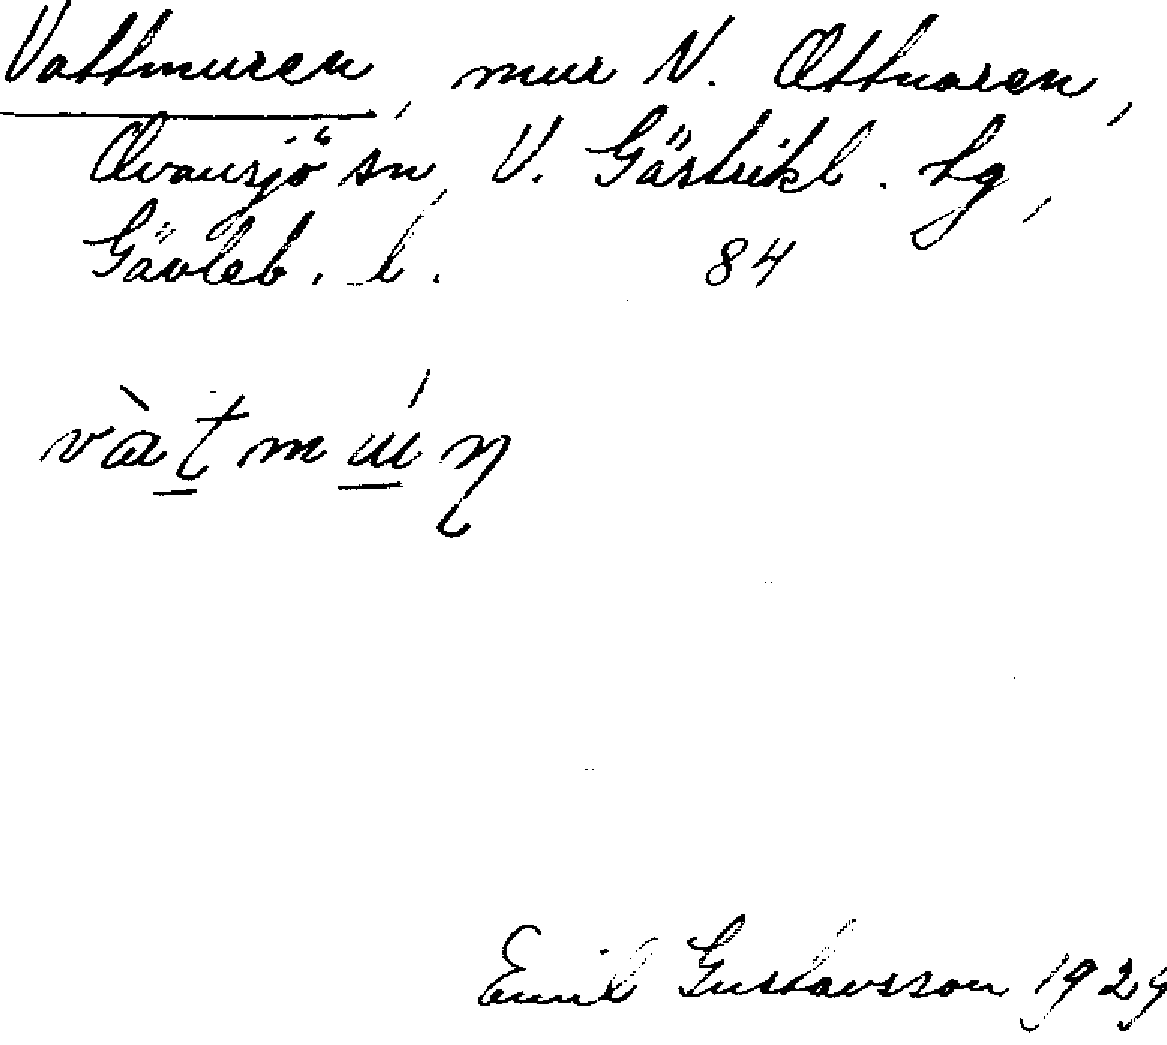 Vattmuren, mur N. Ottnaren,
Ovansjö sn, V. Gästrikl. hg,
Gävleb. l. 84
Emil Gustavsson 1929